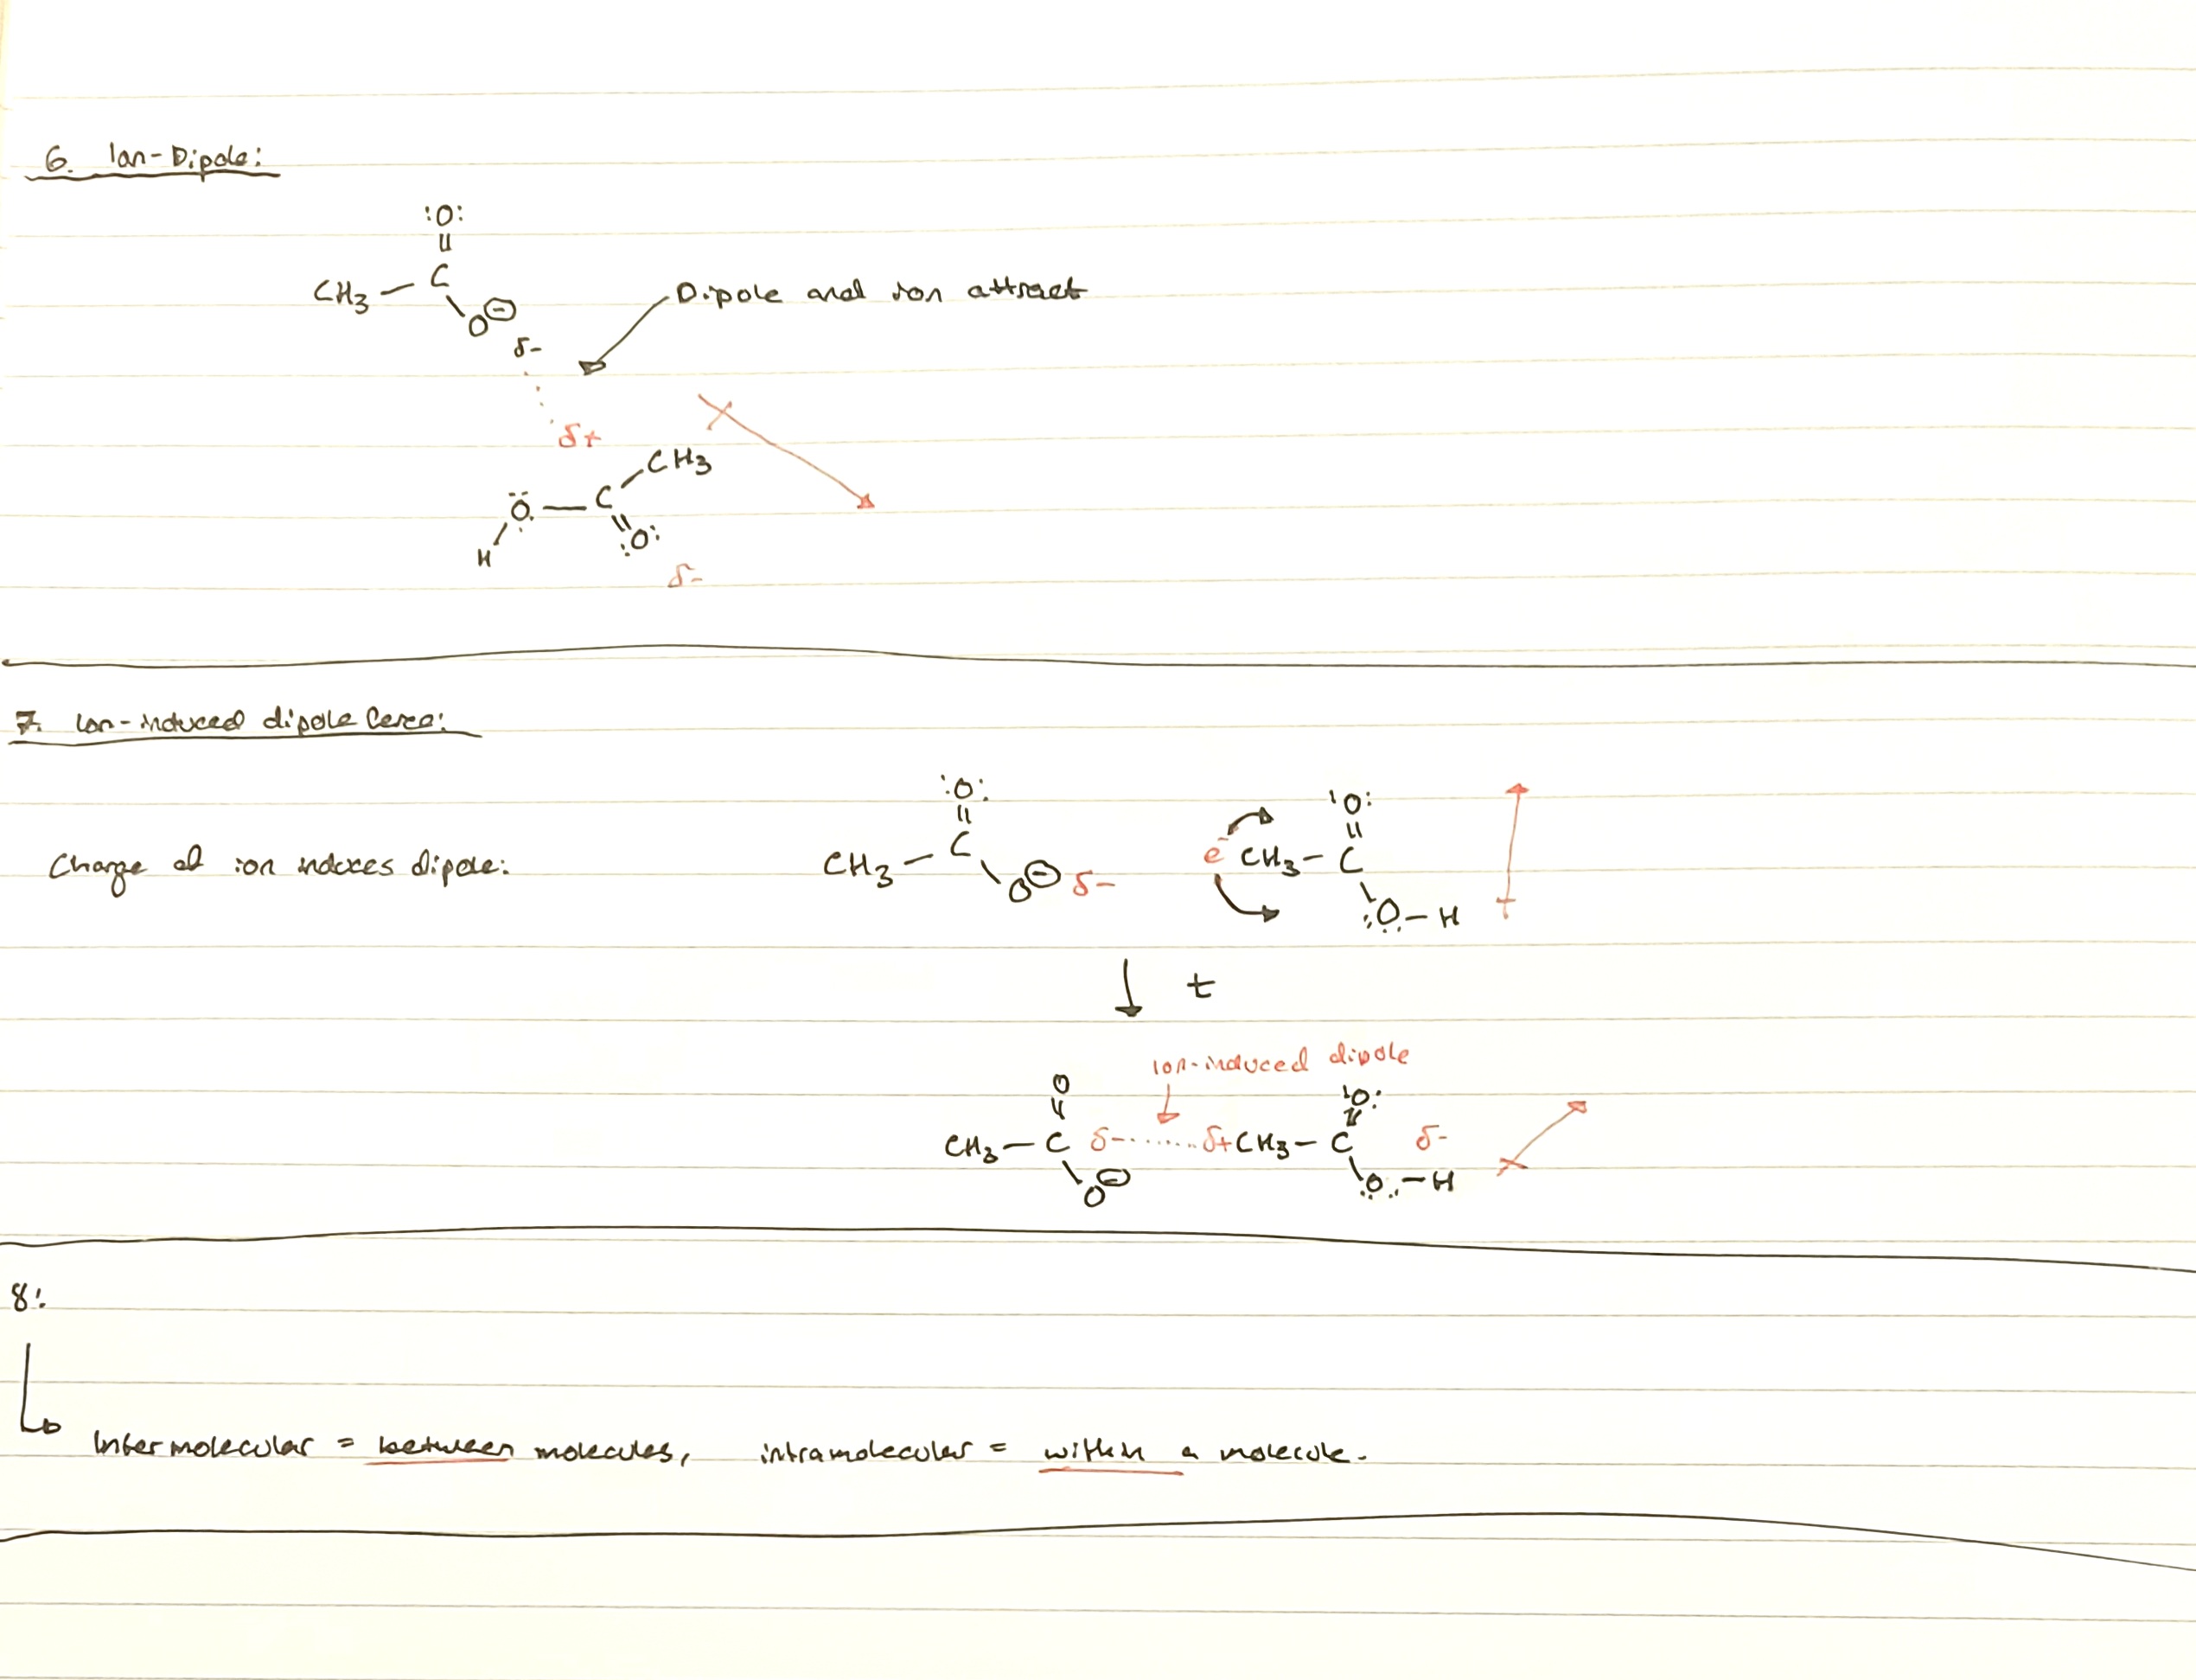 6. Ion-Dipole:
:O:
CH3 — C
O⊖
δ-
Dipole and ion attract
δ+
CH3
H Ö — C
:O:
δ-
7. Ion-induced dipole force:
Charge of ion induces dipole:
:O:
CH3 — C
O⊖ δ-
:O:
e- CH3 — C
:O — H
↓ t
Ion-induced dipole
O
CH3 — C δ- ........ δ+ CH3 — C δ-
:O:
O⊖
O — H
8:
Intermolecular = between molecules, intramolecular = within a molecule.